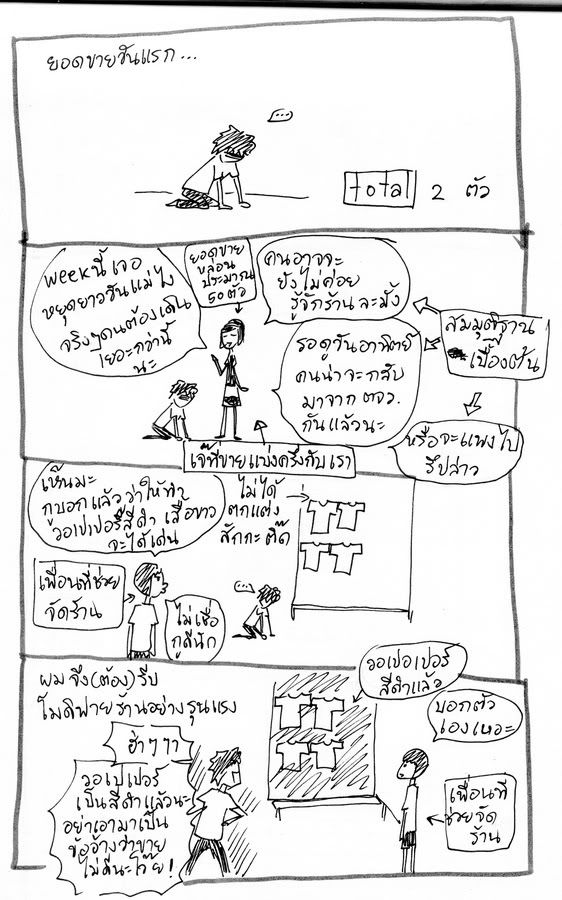 ยอดขายวันแรก...
...
total 2 ตัว
weekนี้ เจอ
หยุดยาววันแม่ไง
จริงๆคนต้องเดิน
เยอะกว่านี้
นะ
ยอดขาย
หล่อน
ประมาณ
50ตัว
คนอาจจะ
ยังไม่ค่อย
รู้จักร้านละมั้ง
สมมุติฐาน
เบื้องต้น
รอดูวันอาทิตย์
คนน่าจะกลับ
มาจาก ตจว.
กันแล้วนะ
หรือจะแพงไป
รึปล่าว
เจ๊ที่ขายแบ่งครึ่งกับเรา
เห็นมะ
กูบอกแล้วว่าให้ทำ
วอเปเปอร์สีดำ เสื้อขาว
จะได้เด่น
ไม่ได้
ตกแต่ง
สักกะติ๊ด
เพื่อนที่ช่วย
จัดร้าน
...
ไม่เชื่อ
กูดีนัก
ผมจึง(ต้อง)รีบ
โมดิฟายร้านอย่างรุนแรง
วอเปอเปอร์
สีดำแล้ว
บอกตัว
เองเหอะ
ฮ่าๆๆา
วอเปเปอร์
เป็นสีดำแล้วนะ
อย่าเอามาเป็น
ข้ออ้างว่าขาย
ไม่ดีนะโว๊ย!
เพื่อนที่
ช่วยจัด
ร้าน